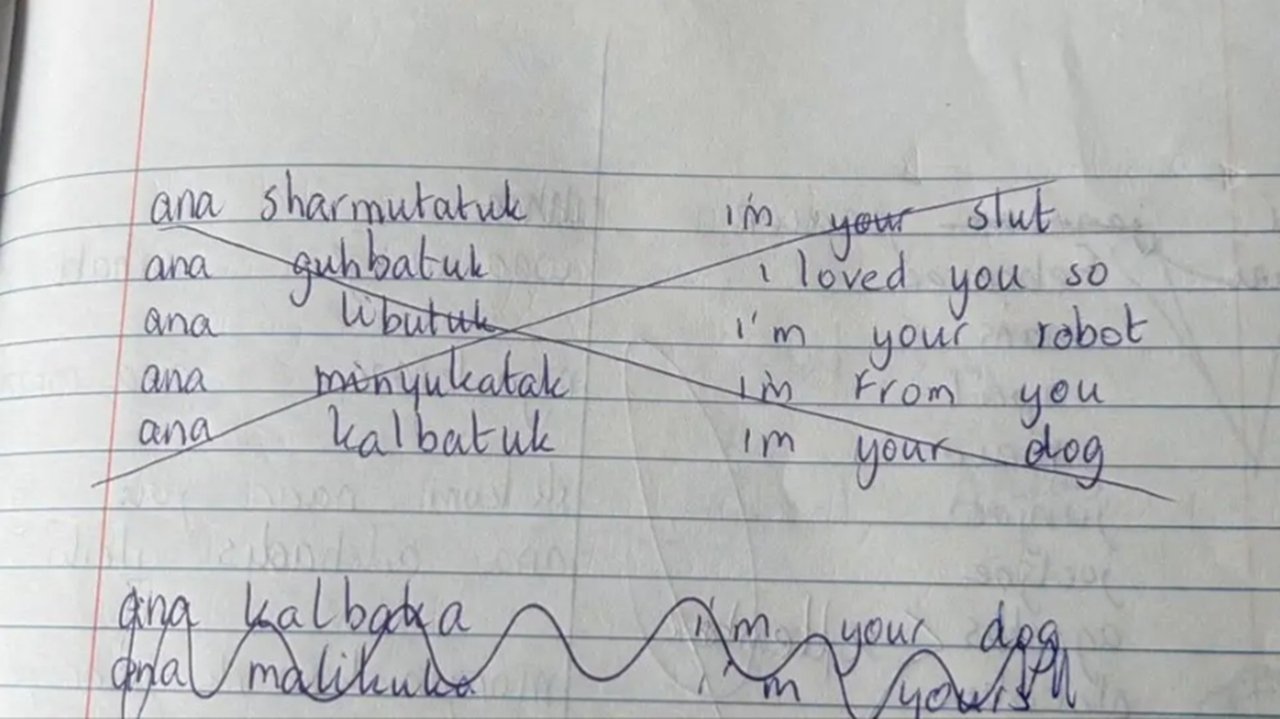 ana sharmutatuk i'm your slut
ana guhbatuk i loved you so
ana libutuk i'm your robot
ana minyukatak i'm from you
ana kalbatuk im your dog
ana kalbaka i'm your dog
ana malikuka i'm yours